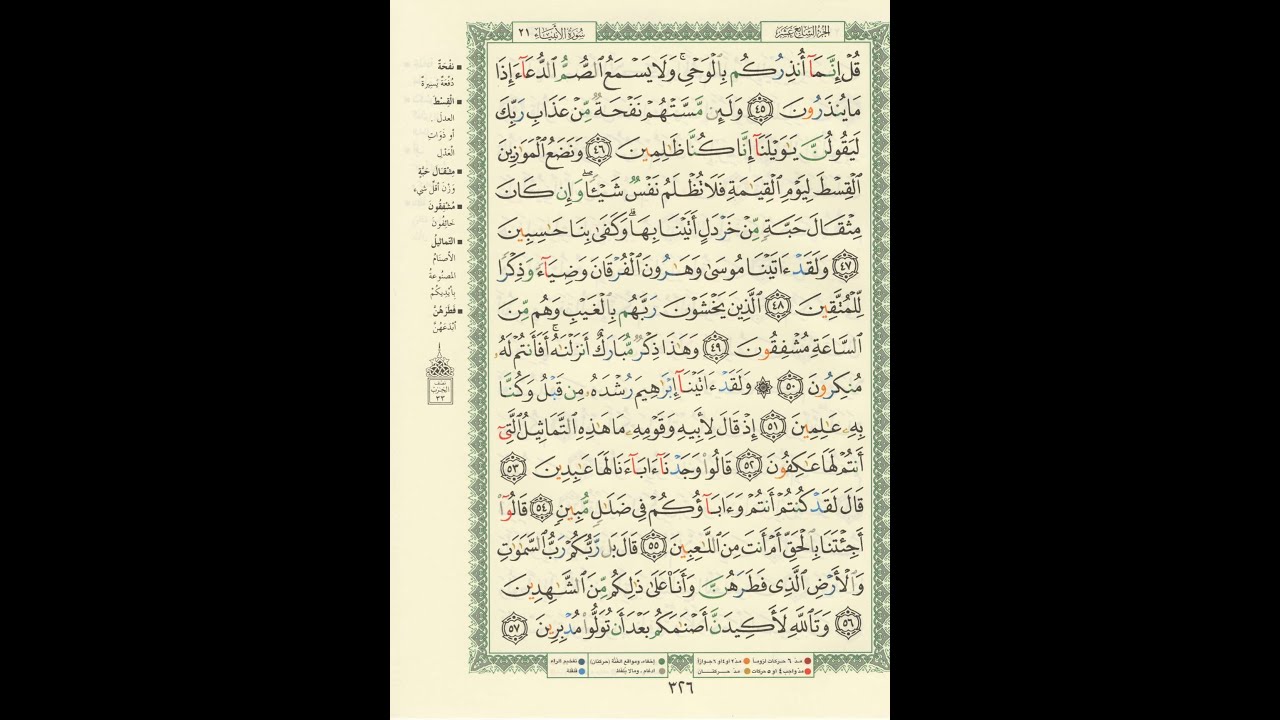 الجزء السابع عشر
سورة الأنبياء ٢١
قُلْ إِنَّمَآ أُنذِرُكُم بِٱلْوَحْىِ ۚ وَلَا يَسْمَعُ ٱلصُّمُّ ٱلدُّعَآءَ إِذَا
مَا يُنذَرُونَ ٤٥ وَلَئِن مَّسَّتْهُمْ نَفْحَةٌ مِّنْ عَذَابِ رَبِّكَ
لَيَقُولُنَّ يَٰوَيْلَنَآ إِنَّا كُنَّا ظَٰلِمِينَ ٤٦ وَنَضَعُ ٱلْمَوَٰزِينَ
ٱلْقِسْطَ لِيَوْمِ ٱلْقِيَٰمَةِ فَلَا تُظْلَمُ نَفْسٌ شَيْـًٔا ۖ وَإِن كَانَ
مِثْقَالَ حَبَّةٍ مِّنْ خَرْدَلٍ أَتَيْنَا بِهَا ۗ وَكَفَىٰ بِنَا حَٰسِبِينَ
٤٧ وَلَقَدْ ءَاتَيْنَا مُوسَىٰ وَهَٰرُونَ ٱلْفُرْقَانَ وَضِيَآءً وَذِكْرًا
لِّلْمُتَّقِينَ ٤٨ ٱلَّذِينَ يَخْشَوْنَ رَبَّهُم بِٱلْغَيْبِ وَهُم مِّنَ
ٱلسَّاعَةِ مُشْفِقُونَ ٤٩ وَهَٰذَا ذِكْرٌ مُّبَارَكٌ أَنزَلْنَٰهُ ۚ أَفَأَنتُمْ لَهُۥ
مُنكِرُونَ ٥٠ ۞ وَلَقَدْ ءَاتَيْنَآ إِبْرَٰهِيمَ رُشْدَهُۥ مِن قَبْلُ وَكُنَّا
بِهِۦ عَٰلِمِينَ ٥١ إِذْ قَالَ لِأَبِيهِ وَقَوْمِهِۦ مَا هَٰذِهِ ٱلتَّمَاثِيلُ ٱلَّتِىٓ
أَنتُمْ لَهَا عَٰكِفُونَ ٥٢ قَالُوا۟ وَجَدْنَآ ءَابَآءَنَا لَهَا عَٰبِدِينَ ٥٣
قَالَ لَقَدْ كُنتُمْ أَنتُمْ وَءَابَآؤُكُمْ فِى ضَلَٰلٍ مُّبِينٍ ٥٤ قَالُوٓا۟
أَجِئْتَنَا بِٱلْحَقِّ أَمْ أَنتَ مِنَ ٱللَّٰعِبِينَ ٥٥ قَالَ بَل رَّبُّكُمْ رَبُّ ٱلسَّمَٰوَٰتِ
وَٱلْأَرْضِ ٱلَّذِى فَطَرَهُنَّ وَأَنَا۠ عَلَىٰ ذَٰلِكُم مِّنَ ٱلشَّٰهِدِينَ
٥٦ وَتَٱللَّهِ لَأَكِيدَنَّ أَصْنَٰمَكُم بَعْدَ أَن تُوَلُّوا۟ مُدْبِرِينَ ٥٧
نَفْحَةٌ
دُفْعَةٌ يَسِيرَةٌ
القِسْطَ
العدلَ .
أو ذَوَاتِ
الْعَدْلِ
مِثْقَالَ حَبَّةٍ
وَزْنَ أقلِّ شيء
مُشْفِقُونَ
خَائِفُونَ
التَّمَاثِيلُ
الأصنَامُ
المصنُوعةُ
بِأَيْدِيكُمْ
فَطَرَهُنَّ
أَبْدَعَهُنَّ
نصف
الحزب
٣٣
مدّ ٦ حركات لزوماً
مدّ ٢ أو ٤ أو ٦ جوازاً
إخفاء، ومواقع الغُنَّة (حركتان)
تفخيم الراء
مدّ واجب ٤ أو ٥ حركات
مدّ حركتان
ادغام ، وما لا يُلفَظ
قلقلة
٣٢٦